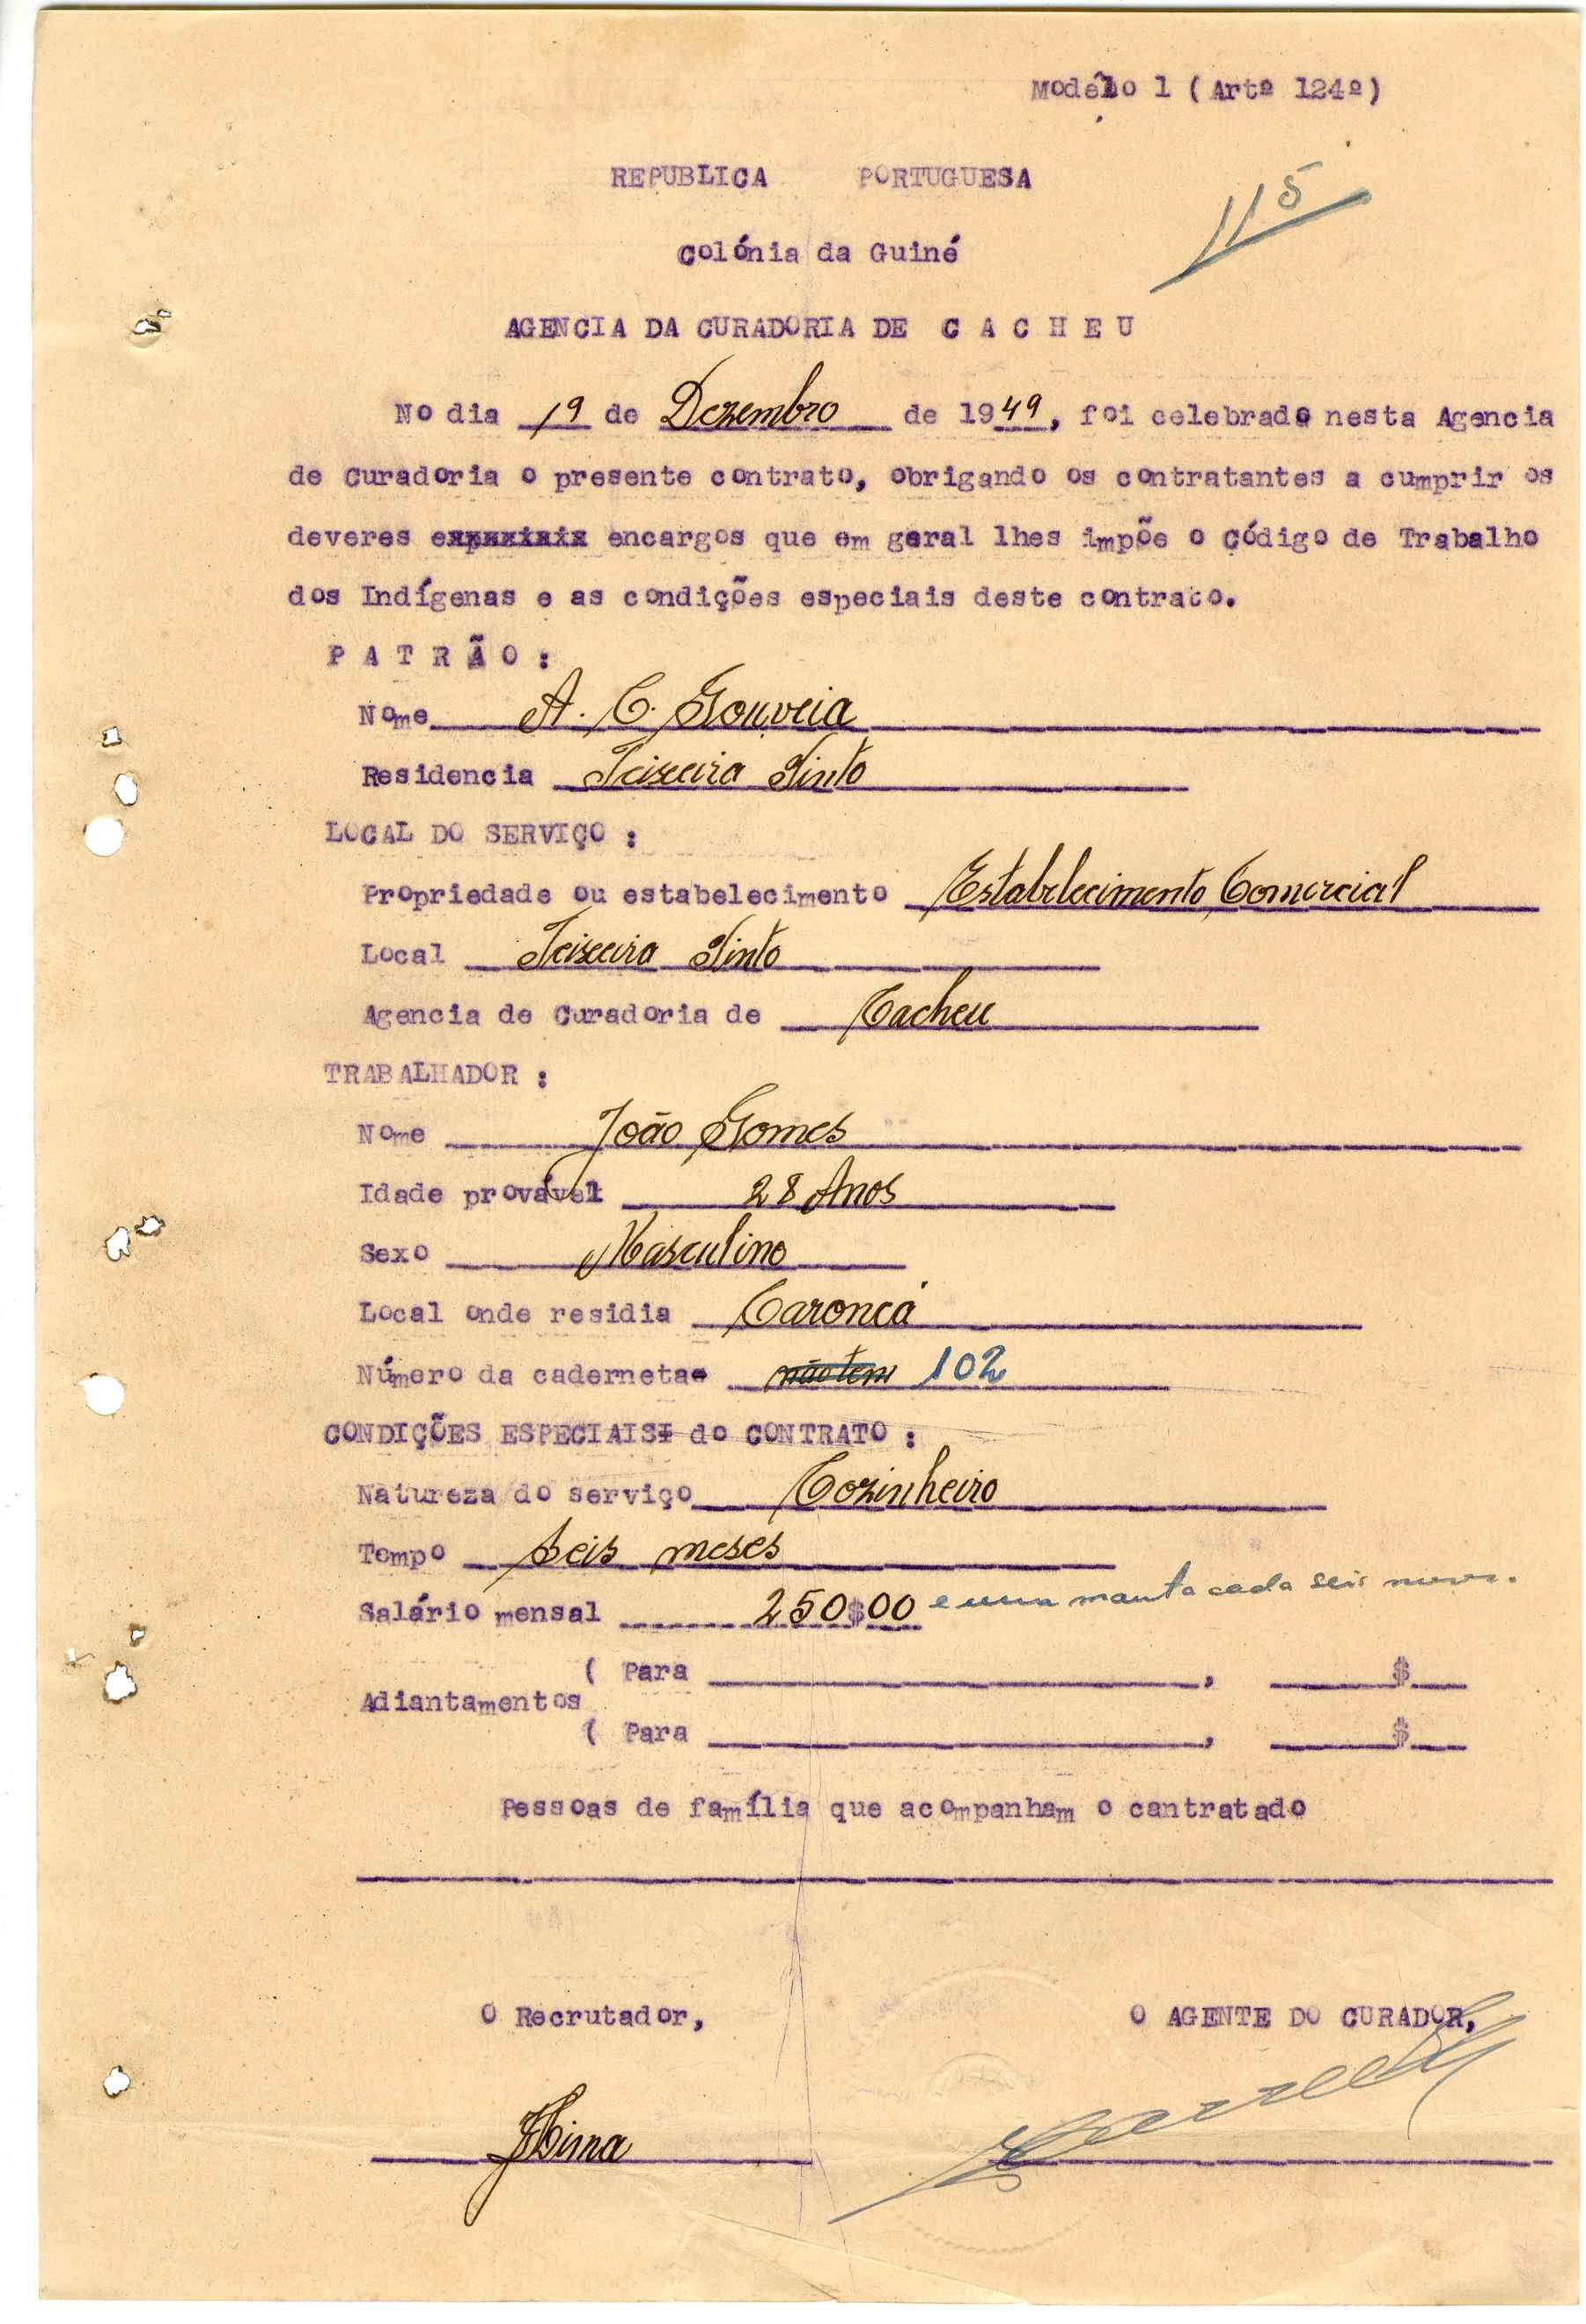 Modêlo 1 ( Artº 124º)
115
REPUBLICA PORTUGUESA
Colónia da Guiné
AGENCIA DA CURADORIA DE C A C H E U
No dia 19 de Dezembro de 1949, foi celebrado nesta Agencia
de Curadoria o presente contrato, obrigando os contratantes a cumprir os
deveres e encargos que em geral lhes impõe o Código de Trabalho
dos Indígenas e as condições especiais deste contrato.
P A T R Ã O :
Nome A. C. Gouveia
Residencia Teixeira Pinto
LOCAL DO SERVIÇO :
Propriedade ou estabelecimento Estabelecimento Comercial
Local Teixeira Pinto
Agencia de Curadoria de Cacheu
TRABALHADOR :
Nome João Gomes
Idade provável 28 Anos
Sexo Masculino
Local onde residia Caroncá
Número da caderneta não tem 102
CONDIÇÕES ESPECIAIS do CONTRATO :
Natureza do serviço Cozinheiro
Tempo Seis meses
Salário mensal 250$00 e uma manta cada seis meses.
( Para , $
Adiantamentos
( Para , $
Pessoas de família que acompanham o cantratado
O Recrutador, O AGENTE DO CURADOR,
Lima